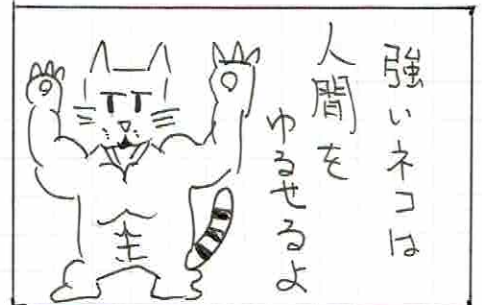 強いネコは
人間を
ゆるせるよ